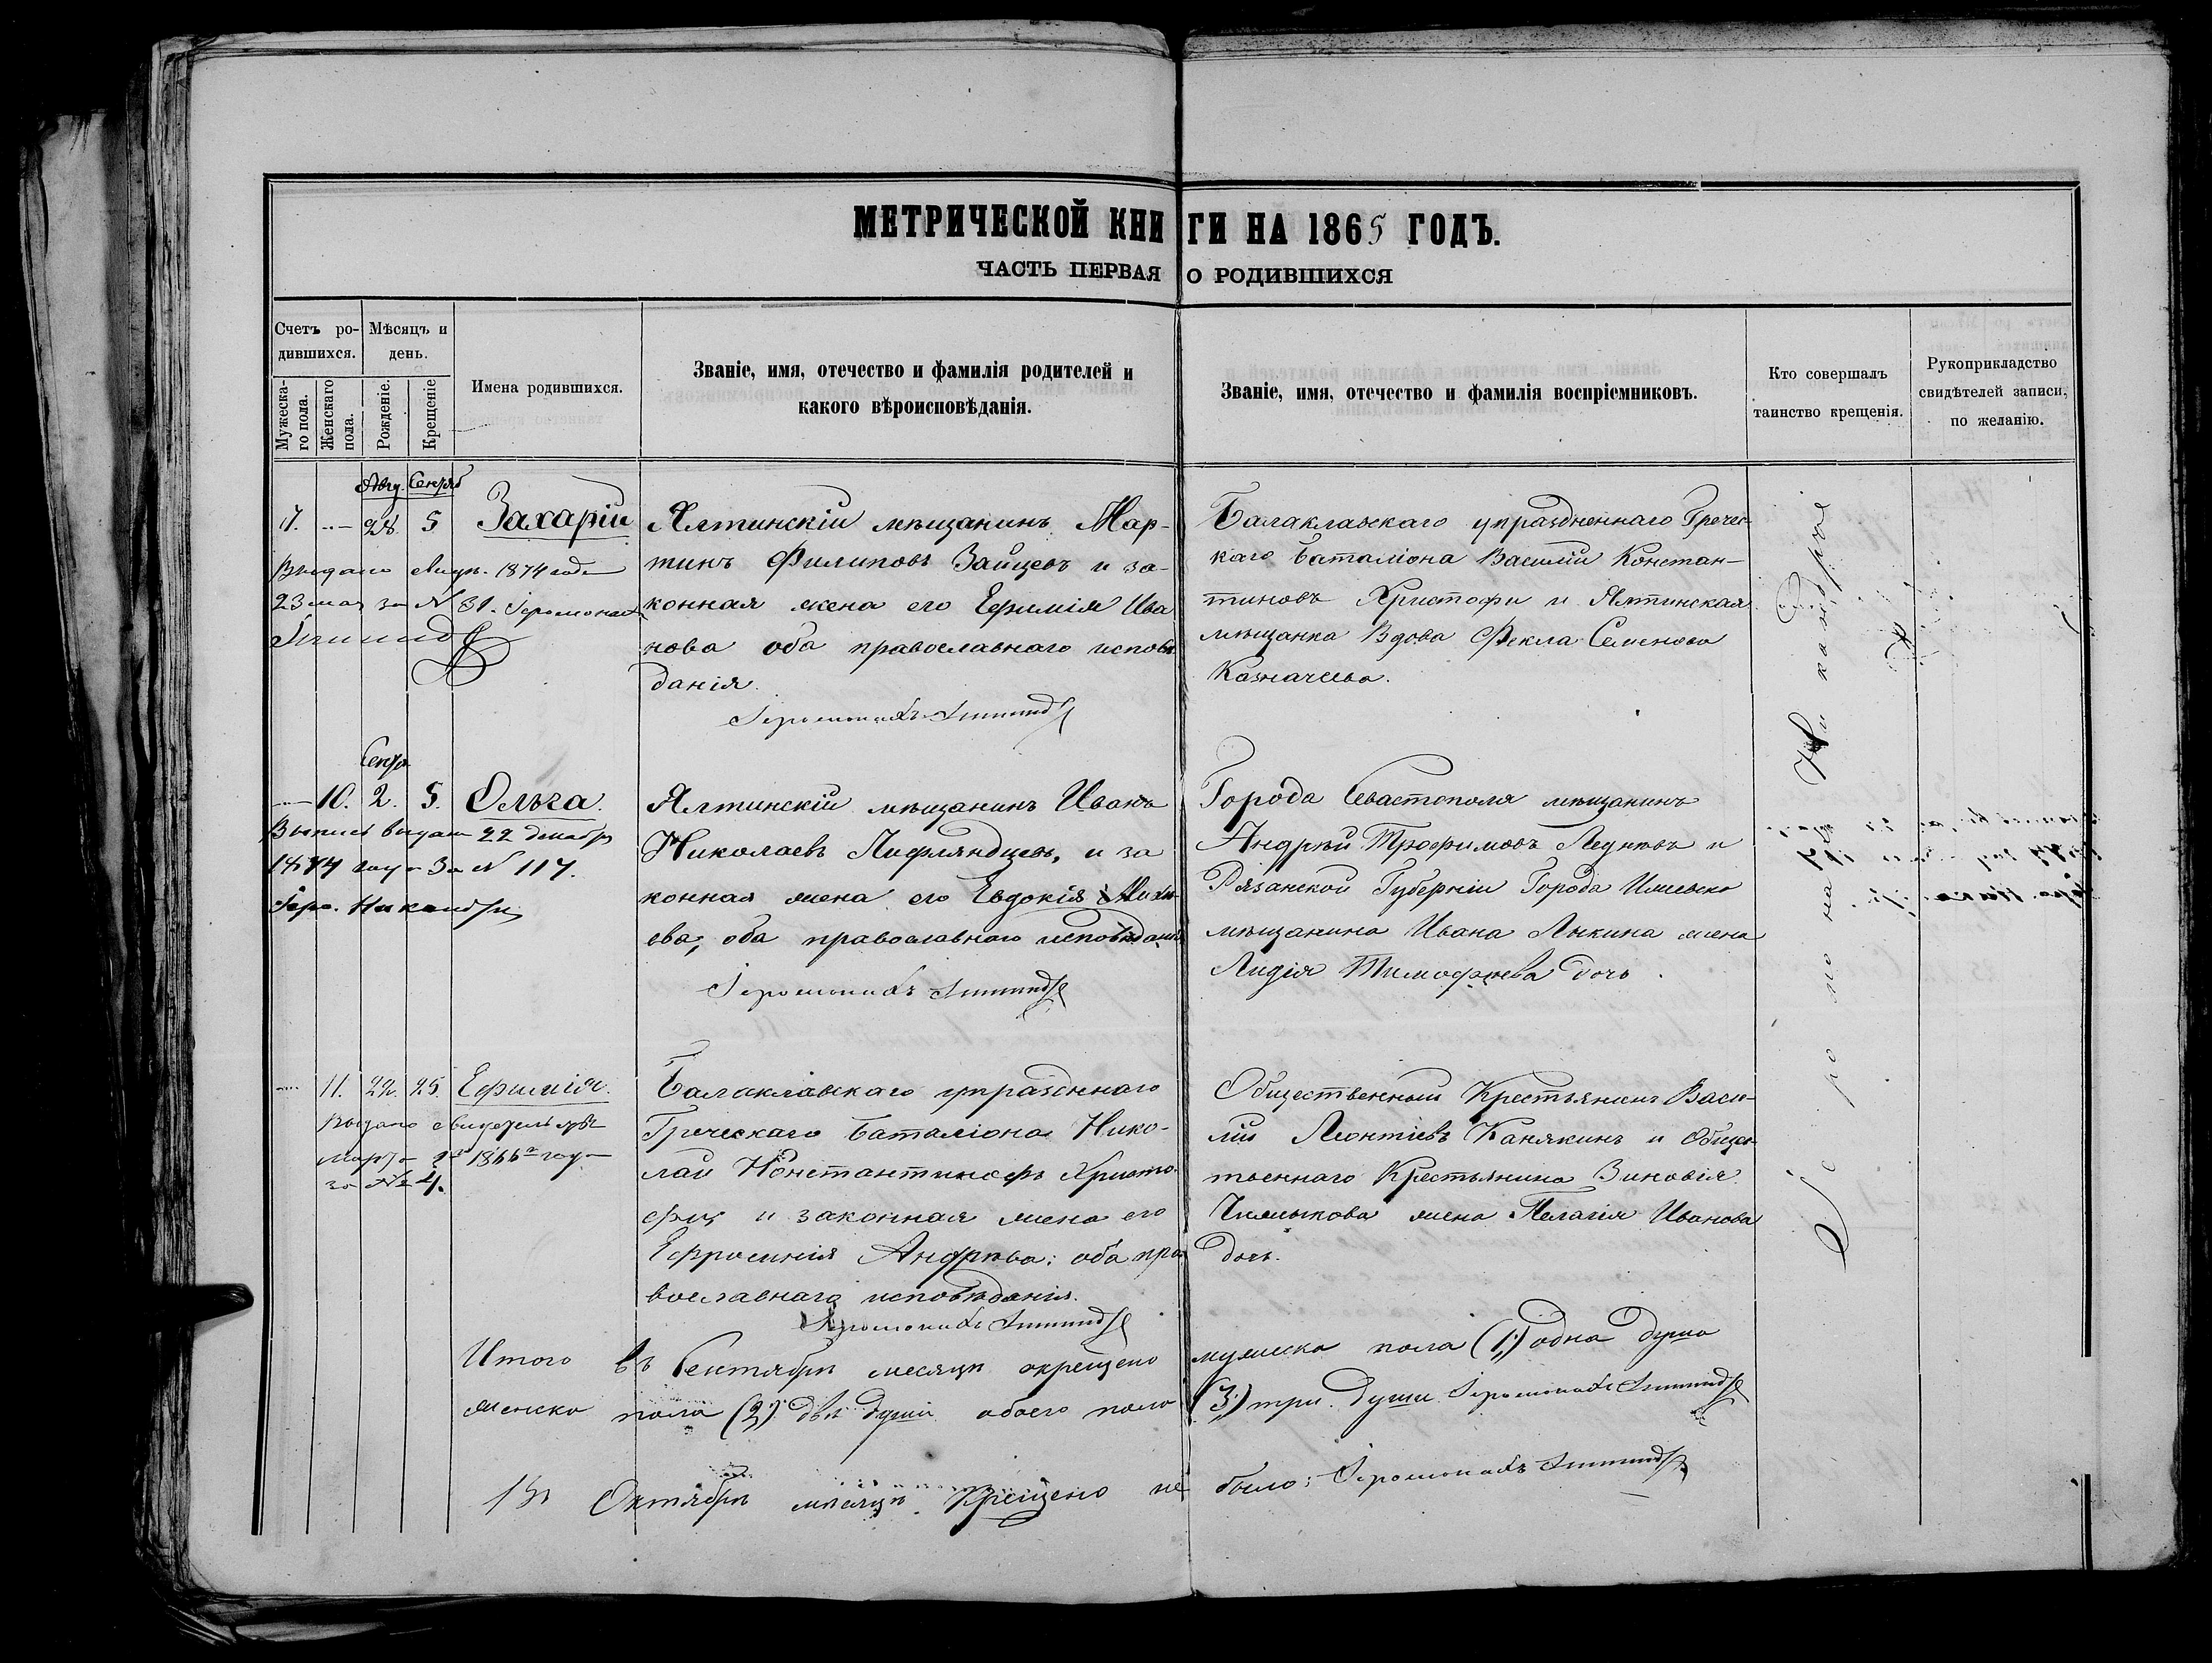 МЕТРИЧЕСКОЙ КНИГИ НА 1865 ГОДЪ.
ЧАСТЬ ПЕРВАЯ О РОДИВШИХСЯ
Счетъ ро-
дившихся.
Мужеска-
го пола.
Женскаго
пола.
Мѣсяцъ и
день.
Рожденіе.
Крещеніе
Имена родившихся.
Званіе, имя, отечество и фамилія родителей и
какого вѣроисповѣданія.
Званіе, имя, отечество и фамилія воспріемниковъ.
Кто совершалъ
таинство крещенія.
Рукоприкладство
свидѣтелей записи,
по желанію.
Авгу. Сентяб
28 5 Захарій
Выдано свидѣ. 1874 года
23 мая за № 31. Іеромонах
Ялтинскій мѣщанинъ Мар-
тинъ Филиповъ Зайцевъ и за-
конная жена его Ефимія Ива
нова оба православнаго исповѣ
данія.
Іеромонахъ
Балаклавскаго упраздненнаго Гречес-
каго баталіона Василій Констан-
тиновъ Христофи и Ялтинская
мѣщанка Вдова Фекла Семенова
Казначеева.
Сентя
10. 2. 5. Ольга.
Выпись выдана 22 декабря
1874 года за № 117.
Іеро. Никандръ
Ялтинскій мѣщанинъ Иванъ
Николаевъ Лифляндцевъ, и за
конная жена его Евдокія
ева, оба православнаго исповѣданія
Іеромонахъ
Города Севастополя мѣщанинъ
Андрѣй Трофимовъ Леунтъ и
Рязанской Губерніи Города
мѣщанина Ивана Лыкина жена
Лидія Тимофѣева дочь.
11. 22. 25. Ефимія.
Выдано свидетельтво
Марта 1866го года
за № 4.
Балаклавскаго упраздннаго
Греческаго баталіона Нико-
лай Константиновъ Христо-
фи и законная жена его
Ефросинія Андрѣва: оба пра
вославнаго исповѣданія.
Іеромонахъ
Общественный Крестьянинъ Васи-
лій Леонтіевъ Канякинъ и Общес
твеннаго Крестьянина Зиновія
жена Пелагія Иванова
дочь.
Іеромонахъ Никандръ
Итого въ Сентябрѣ месяцѣ окрещено мужеска пола (1,) одна душа
женска пола (2) двѣ души обоего пола (3) три души Іеромонахъ
Въ Октябрѣ мѣсяцѣ Крещено не было: Іеромонахъ